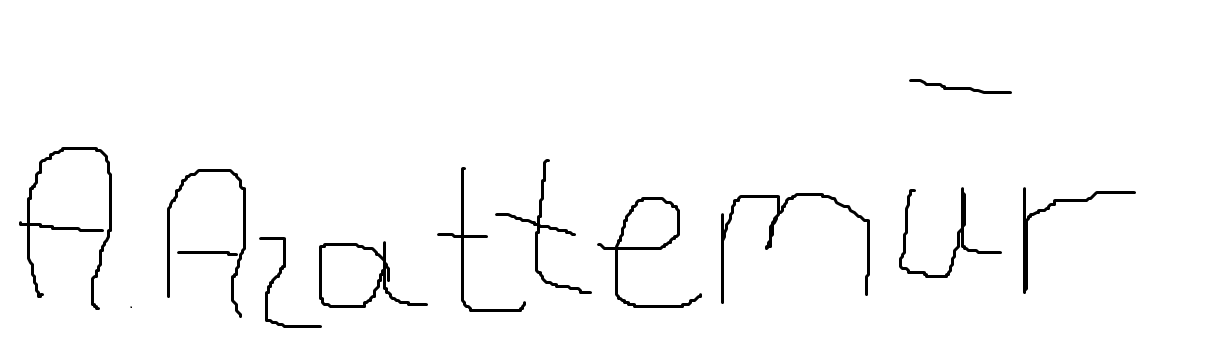 A. Azattemūr